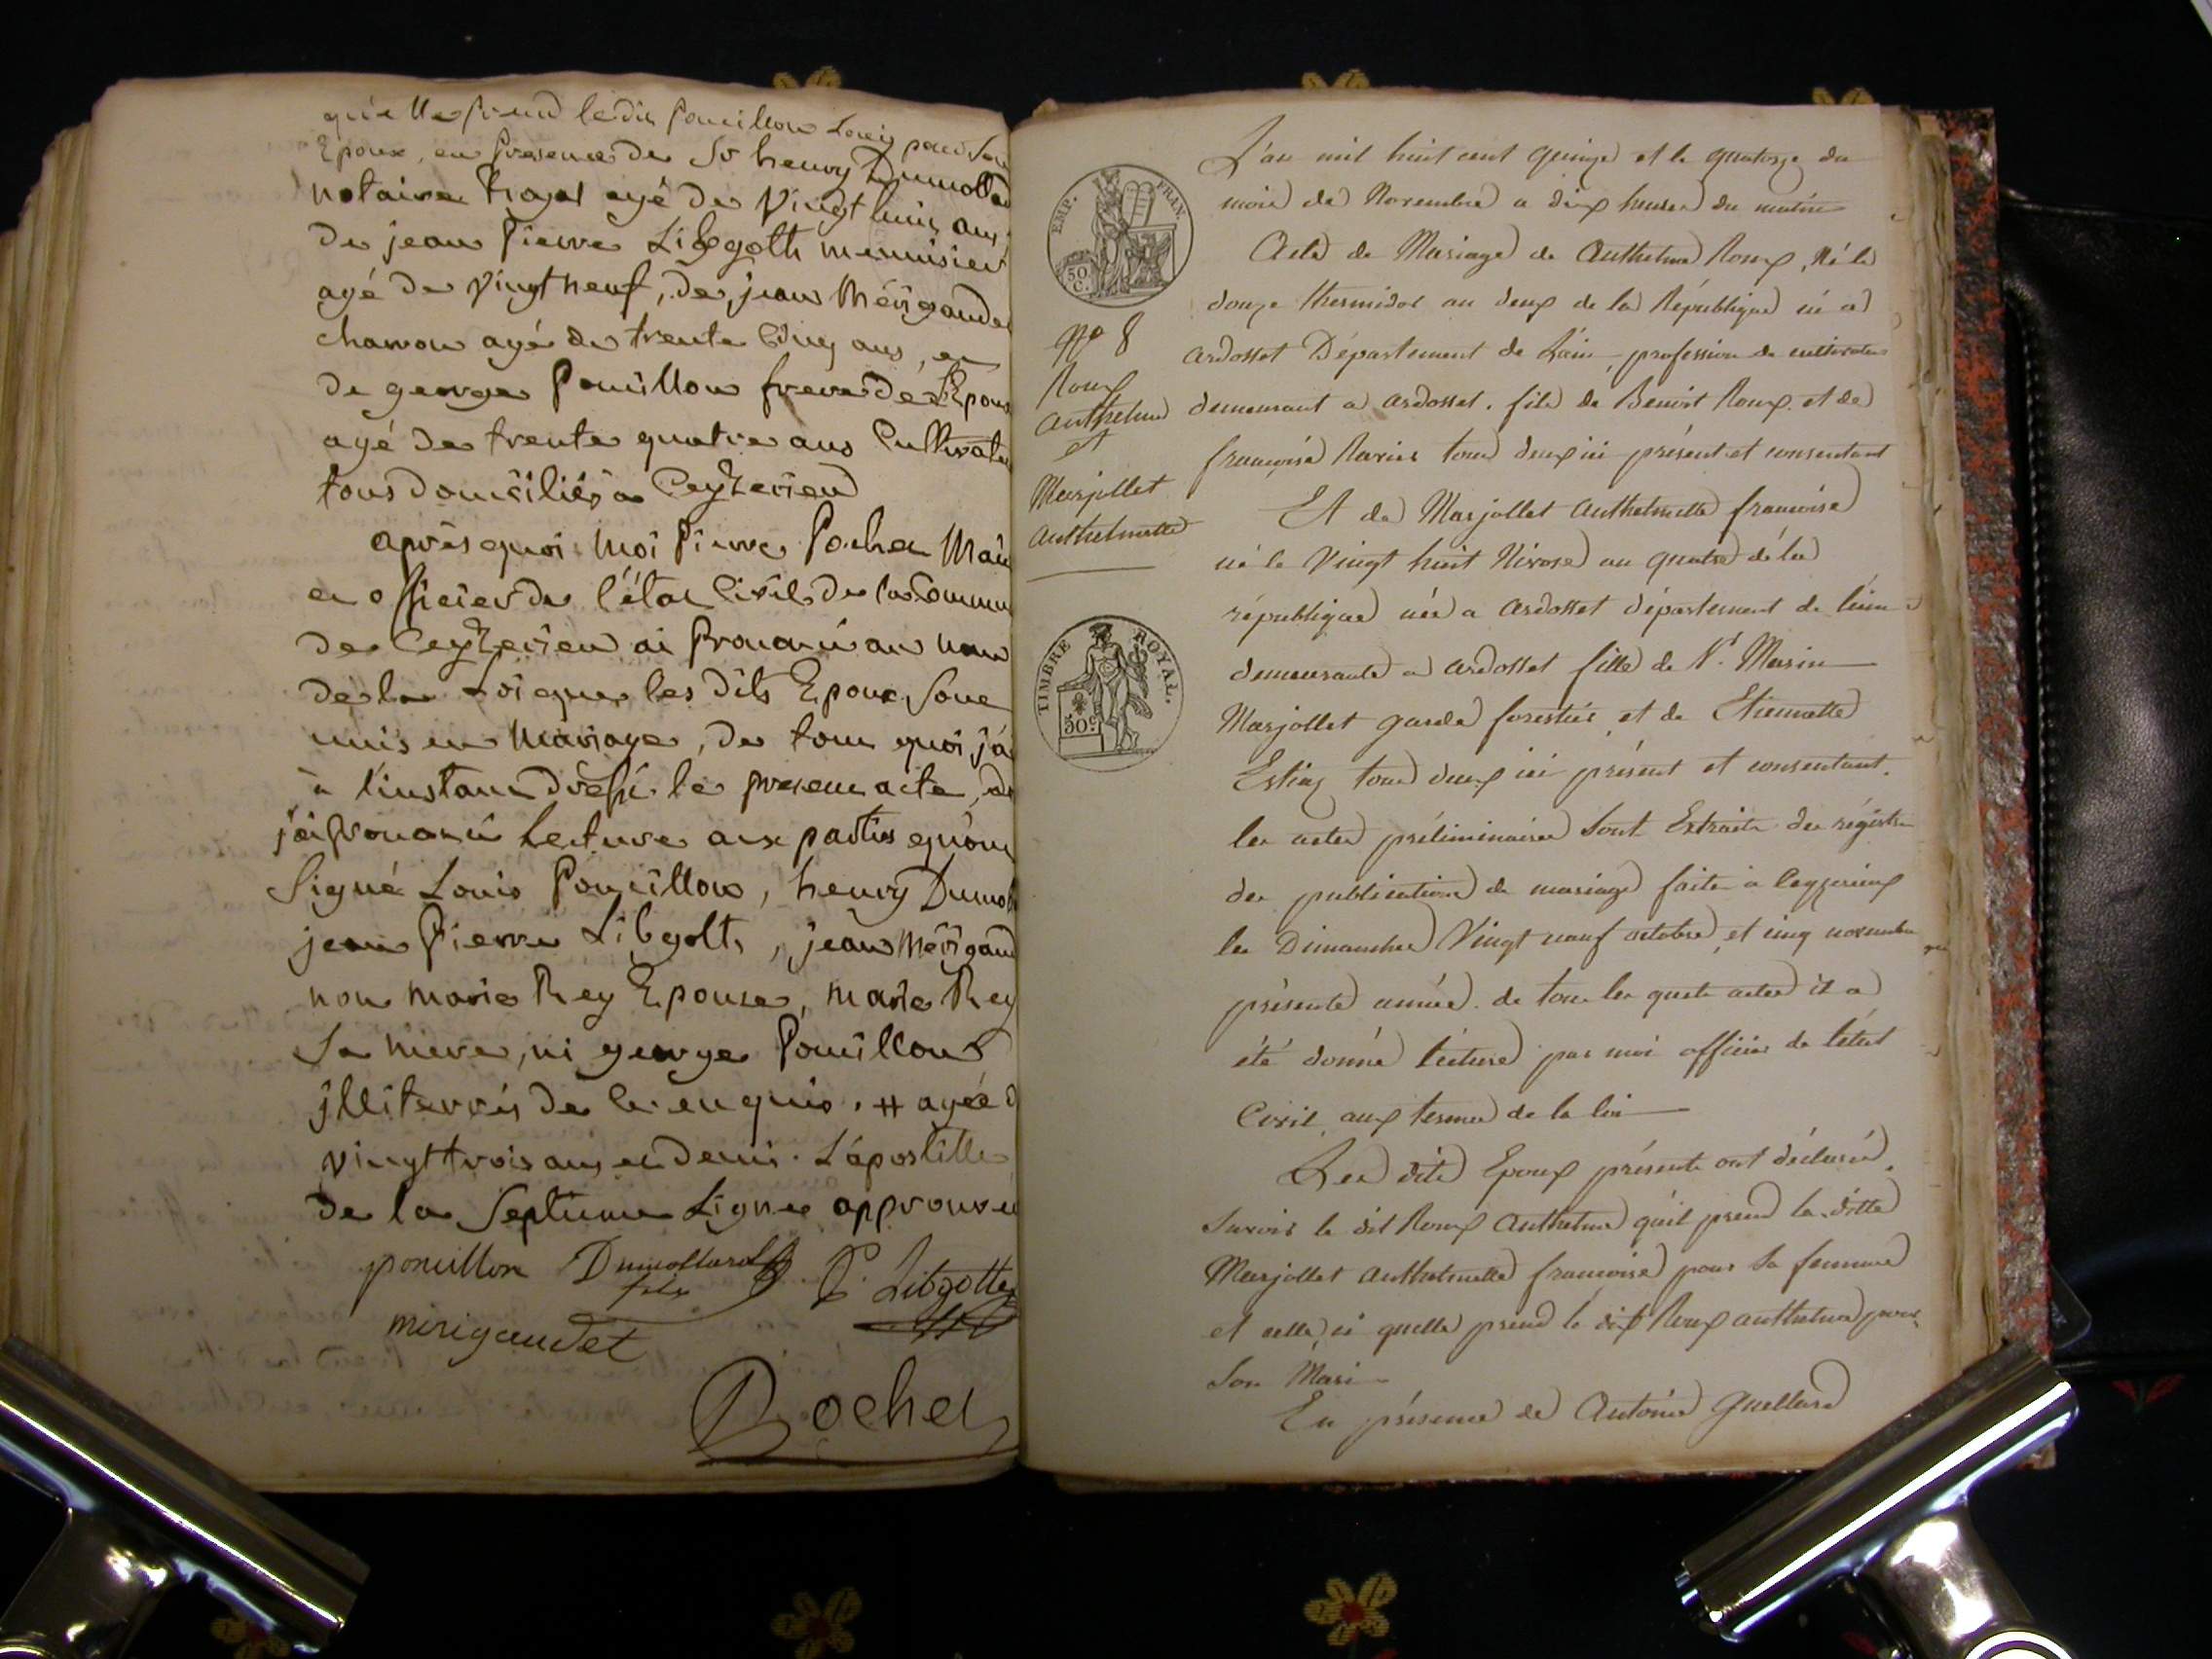 qu'elle prend ledit Pouillon Louis pour son
Epoux, en presence de Sr henry Dumolla
notaire Royal agé de Vingt huit ans
de jean Pierre Libgolts menuisier
agé de Vingt neuf, de jean Mérigaude
charron agé de trente Cinq ans, et
de george Pouillon frere de l'Epou
agé de trente quatre ans Cultivate
tous domiciliés a Ceyzerieu
après quoi moi Pierre Pochet Mai
et officier de l'état Civil de la Commun
de Ceyzerieu ai prononcé au nom
de la Loi que les dits Epoux sont
unis en Mariage, de tout quoi j'ai
à l'instant dressé le present acte, et
j'ai prononcé Lecture aux parties qu'ont
Signé Louis Pouillon, henry Dumol
jean Pierre Libgolts, jean Mérigaud
non marie Rey Epouse, marie Rey
Sa mere, ni george Pouillon
jlliterrés de ce enquis. # agée d
vingt trois ans et demi. L'apostille
de la Septieme Ligne approuvée
pouillon Dumollard P. Libgotts
fils
mérigaudet
Pochet
EMP. FRAN.
50 C.
No 8
Roux
Anthelme
et
Marjollet
Anthelmette
TIMBRE ROYAL.
50 c.
L'an mil huit cent quinze et le quatorze du
mois de Novembre a dix heures du matin
Acte de Mariage de Anthelme Roux, Né le
douze thermidor an deux de la République né a
Ardosset Département de L'ain, profession de cultivateur
demeurant a Ardosset. fils de Benoit Roux et de
françoise Ravier tous deux ici présent et consentant
Et de Marjollet Anthelmette françoise
né le Vingt huit Nivose an quatre de la
république née a Ardosset département de l'ain
demeurante a Ardosset fille de Sr. Marin
Marjollet garde forestier, et de Etiennette
tous deux ici présent et consentant.
les actes préliminaires Sont Extraits des régistre
des publications de mariage faites à Ceyzerieux
les Dimanches Vingt neuf octobre, et cinq novembre
présente année. de tous les quels actes il a
été donné lecture par moi officier de l'état
Civil, aux termes de la loi
Les dits Epoux présents ont déclarés.
Savoir le dit Roux Anthelme qu'il prend la ditte
Marjollet Anthelmette françoise pour sa femme
et celle ci quelle prend le dit Roux anthelme pour
son Mari
En présence de Antoine Guellard